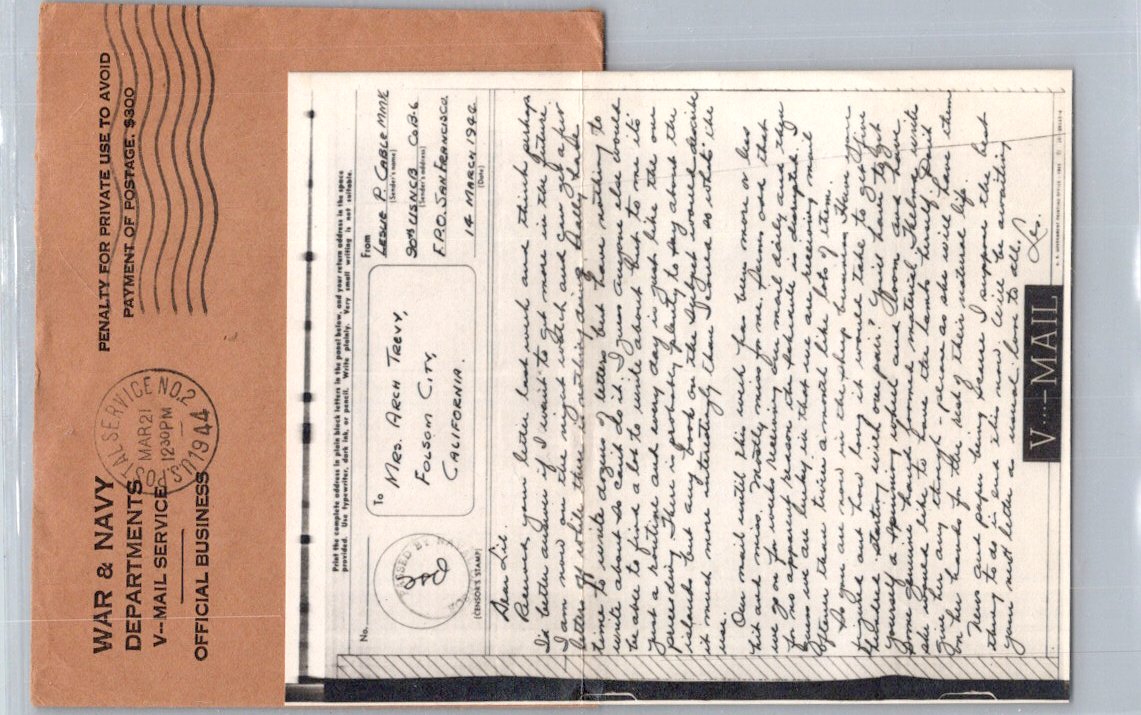 WAR & NAVY
DEPARTMENTS
V--MAIL SERVICE
OFFICIAL BUSINESS
PENALTY FOR PRIVATE USE TO AVOID
PAYMENT OF POSTAGE, $300
POSTAL SERVICE NO.2
MAR 21
1230 PM
1944
Print the complete address in plain block letters in the panel below, and your return address in the space
provided. Use typewriter, dark ink, or pencil. Write plainly. Very small writing is not suitable.
No.
PASSED BY NAVAL
(CENSOR'S STAMP)
To
MRS. ARCH TREVY,
FOLSOM CITY,
CALIFORNIA.
From
LESLIE P. CABLE MM1C
(Sender's name)
90TH USNCB CO.B-6
(Sender's address)
F.P.O. SAN FRANCISCO
14 MARCH 1944
(Date)
Dear Lil.
Received your letter last week and think perhaps
I'd better answer if I want to get more in the future.
I am now on the night watch and can get a few
letters off while there is nothing doing. Really have
time to write dozens of letters but have nothing to
write about so can't do it. I guess anyone else would
be able to find a lot to write about but to me it's
just a routine and every day is just like the one
preceeding. There is probably plenty to say about the
island but any book on the subject would describe
it much more interestingly than I could as what's the
use.
Our mail until this week has been more or less
hit and miss. Mostly miss for me. Seems odd that
we go on for weeks receiving our mail daily and then
for no apparent reason the schedule is disrupted. I
guess we are lucky in that we are receiving mail
oftener than twice a month like lots of them.
So you are now in the sheep business. Have you
figured out how long it would take to get you
started with one pair? You'll have to get
yourself a spinning wheel and loom and have
some Jennie hand formed material. Thelma wrote
she would like to have the lambs herself. Don't
give her any though - please as she will have them
on her hands for the rest of their natural life.
News and paper being scarce I suppose the best
thing to do is end this now. Will be awaiting
your next letter as usual love to all.
Les.
U. S. GOVERNMENT PRINTING OFFICE : 1943
V---MAIL